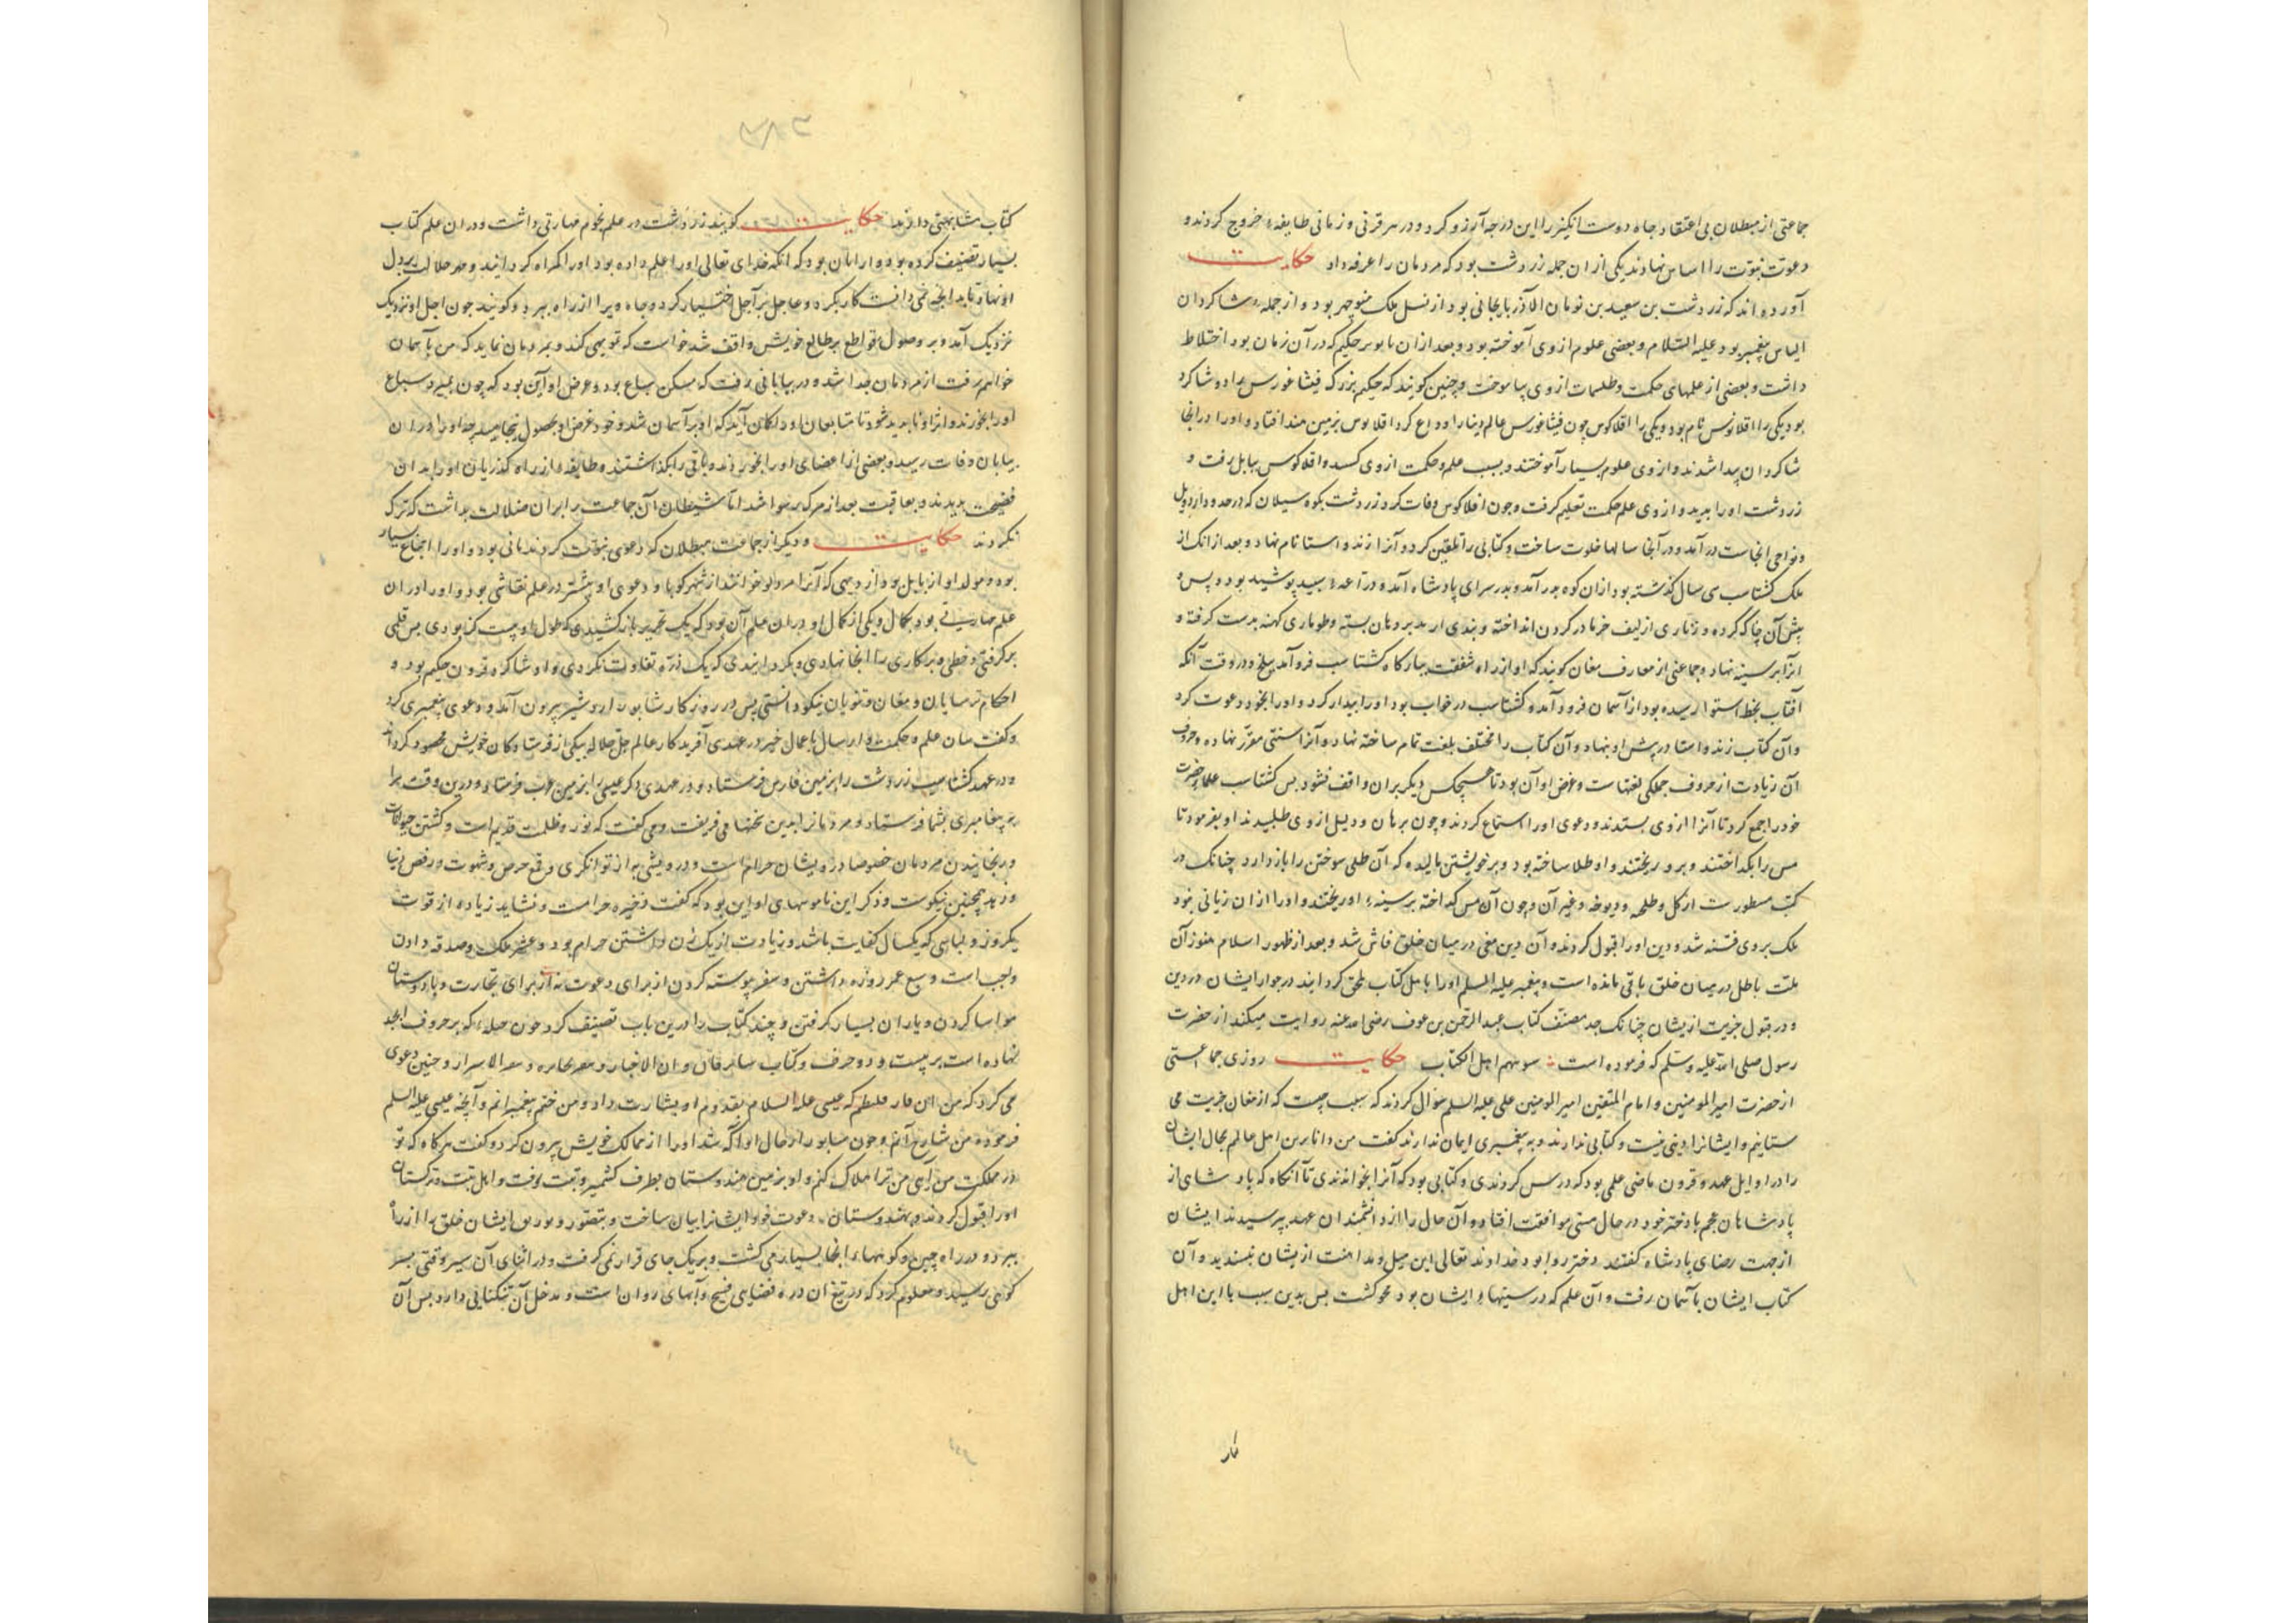 جماعتی از مبطلان بی اعتقاد جاه دوست انکیز را این درجه آرزو کرد و در هر قرنی و زمانی طایفه خروج کردند و
دعوت نبوت را اساس نهادند یکی از ان جمله زردشت بود که مردمان را عرفه داد حکایت
آورده اند که زردشت بن سعید بن نومان الآذربایجانی بود از نسل ملک منوچهر بود و از جمله شاکردان
الیاس پیغمبر بود علیه السلام و بعضی علوم از وی آموخته بود و بعد ازان با بوسر حکیم که در آن زمان بود اختلاط
داشت و بعضی از علمهای حکمت و طلسمات از وی بیاموخت و چنین کویند که حکیم بزرک فیثاغورس را دو شاکرد
بود یکی را اقلانوس نام بود و یکی را اقلاکوس چون فیثاغورس عالم دینا را وداع کرد اقلانوس بزمین هند افتاد و او را در انجا
شاکردان پیدا شدند و از وی علوم بسیار آموختند و بسبب علم و حکمت از وی کسد و اقلاکوس ببابل رفت و
زردشت او را بدید و از وی علم حکمت تعلیم کرفت و چون اقلاکوس وفات کرد زردشت بکوه سیلان که در حدود اردبیل
و نواحی انجاست در آمد و در آنجا سالها خلوت ساخت و کتابی را تلقین کرد و آنرا زند و استا نام نهاد و بعد از انک از
ملک کشتاسب سی سال کذشته بود ازان کوه بدر آمد و بدر سرای پادشاه آمد و دراعه سپید پوشیده بود و پس و
پیش آن چاک کرده و زناری از لیف خرما در کردن انداخته و بندی اربد بر دهان بسته و طوماری کهنه بدست کرفته و
انرا بر سینه نهاد و جماعتی از معارف مغان کویند که او از راه شفقت ببارکاه کشتاسب فرو آمد ببلخ و در وقت آنکه
آفتاب بخط استوا رسیده بود از آسمان فرود آمد و کشتاسب در خواب بود او را بیدار کرد و او را بخود دعوت کرد
و آن کتاب زند و استا در پیش او بنهاد و آن کتاب را مختلف بلغت تمام ساخته نهاد و آنرا سنتی مقرر نهاده و حروف
آن زیادت از حروف جملکی لغتهاست و غرض او آن بود تا هیچکس دیکر بران واقف نشود بس کشتاسب علماء حضرت
خود را جمع کرد تا آنرا از وی بستدند و دعوی او را استماع کردند و چون برهان و دلیل از وی طلبیدند او بفرمود تا
مس را بکداختند و برو ریختند و او طلا ساخته بود و بر خویشتن مالیده که آن طلی سوختن را باز دارد چنانک در
کتب مسطورست از کل و طلحه و دیوخه و غیر آن و چون آن مس کداخته بر سینه او ریختند و او را ازان زیانی نبود
ملک بر وی فتنه شد و دین او را قبول کردند و آن دین مغی در میان خلق فاش شد و بعد از ظهور اسلام هنوز آن
ملت باطل در میان خلق باقی مانده است و پیغمبر علیه السلم او را باهل کتاب ملحق کردانید در جوار ایشان در دین
و در قبول جزیت از یشان چنانک جد مصنف کتاب عبد الرحمن بن عوف رضی الله عنه روایت میکند از حضرت
رسول صلی الله علیه و سلم که فرموده است سنو بهم اهل الکتاب حکایت روزی جماعتی
از حضرت امیر المومنین و امام المتقین امیر المومنین علی علیه السلم سؤال کردند که سبب چیست که از مغان جزیت می
ستانیم و ایشانرا دینی نیست و کتابی ندارند و به پیغمبری ایمان ندارند کفت من داناترین اهل عالم بحال ایشان
را در اوایل عهد و قرون ماضی علمی بود که درس کردندی و کتابی بود که آنرا بخواندندی تا آنکاه که پادشاهی از
پادشاهان عجم با دختر خود در حال مستی موافقت افتاد و آن حال را از دانشمندان عهد بپرسیدند ایشان
از جهت رضای پادشاه کفتند دختر روا بود خداوند تعالی این میل و مداهنت از یشان نپسندید و آن
کتاب ایشان بآسمان رفت و آن علم که در سینها ایشان بود محو کشت بس بدین سبب با این اهل
کتاب مشابهتی دارند حکایت کویند زردشت در علم نجوم مهارتی داشت و در ان علم کتاب
بسیار تصنیف کرده بود و از انان بود که انکه خدای تعالی او را علم داده بود او را کمراه کردانید و مهر ضلالت بر دل
او نهاد تا بد انچه می دانست کار نکرد و عاجل بر آجل اختیار کرد و جاه ویرا از راه ببرد و کویند چون اجل او نزدیک
نزدیک آمد و بر وصول قواطع بر طالع خویش واقف شد خواست که تمویهی کند و بمردمان نماید که من بآسمان
خواهم رفت از مردمان جدا شد و در بیابانی برفت که مسکن سباع بود و غرض او آن بود که چون بمیرد سباع
او را بخورند و اثر او ناپدید شود تا متابعان او را کمان آید که او بر آسمان شد و خود غرض او بحصول نینجامید چه او را در ان
بیابان وفات رسید و بعضی از اعضای او را بخوردند و باقی را بکذاشتند و طایفه از راه کذریان او را بدان
فضیحت بدیدند و بعاقبت بعد از مرک رسوا شد اما شیطان آن جماعت را بران ضلالت بداشت که ترک
نکردند حکایت و دیکر از جماعت مبطلان که دعوی نبوت کردند مانی بود و او را اتباع بسیار
بود و مولد او از بابل بود از دیهی که آنرا مردلو خوانند از شهر کوپا و دعوی او بیشتر در علم نقاشی بود و او را در ان
علم مهارتی بود بکمال و یکی از کمال او در ان علم آن بود که یک تحریر باز کشیدی که طول او بیست کز بودی بس قلمی
بر کرفتی و خطی و پرکاری را انجا نهادی و بکردانیدی که یک ذره تفاوت نکردی و او شاکرد قرون حکیم بود و
احکام ترسایان و مغان و ثنویان نیکو دانستی پس در روزکار شابور اردشیر بیرون آمد و دعوی پیغمبری کرد
و کفت علم و حکمت و ارسال باعمال خیر در عهدی آفریدکار عالم جل جلاله بیکی از فرستادکان خویش محصور کرداند
و در عهد کشتاسب زردشت را بزمین فارس فرستاد و در عهدی دکر عیسی را بزمین عرب فرستاد و درین وقت مرا
به پیغامبری بشما فرستاد و مردمانرا بدین سخنها می فریفت و می کفت که نور و ظلمت قدیم است و کشتن حیوانات
و رنجانیدن مردمان خصوصا درویشان حرام است و درویشی به از توانکری و قمع حرص و شهوت و رفض دنیا
و زهد همچنین نیکوست و ذکر این ناموسهای او این بود که کفت ذخیره حرامست و نشاید زیاده از قوت
یکروز و لباسی که یکسال کفایت باشد و زیادت از یک زن داشتن حرام بود و عشر ملک و صدقه دادن
واجب است و سبع عمر روزه داشتن و سفر پیوسته کردن از برای دعوت نه از برای تجارت و با دوستان
مواسا کردن و یاران بسیار کرفتن و چند کتاب را درین باب تصنیف کرد چون که بر حروف ابجد
نهاده است بر بیست و دو حرف و کتاب و سفر الاسرار و چنین دعوی
می کرد که من آن فارقلیطم که عیسی علیه السلام بقدوم او بشارت داد و من ختم پیغمبرانم و آنچه عیسی علیه السلم
فرموده من شارح آنم و چون سابور از حال او آکه شد او را از ممالک خویش بیرون کرد و کفت هرکاه که تو
در مملکت من آیی من ترا هلاک کنم و او بزمین هندوستان بطرف کشمیر و تبت رفت و اهل تبت و ترکستان
او را قبول کردند و بهندوستان دعوت خود ایشانرا بیان ساخت و بتصویر ایشان خلق را از راه
ببرد و در راه چین و کوههاء انجا بسیار می کشت و بر یک جای قرار نمی کرفت و در اثنای آن سیر وقتی بسر
کوهی رسید و معلوم کرد که در تیغ ان دره فضایی فسیح و آبهای روان است و مدخل آن تنکنایی دارد بس آن
نماز